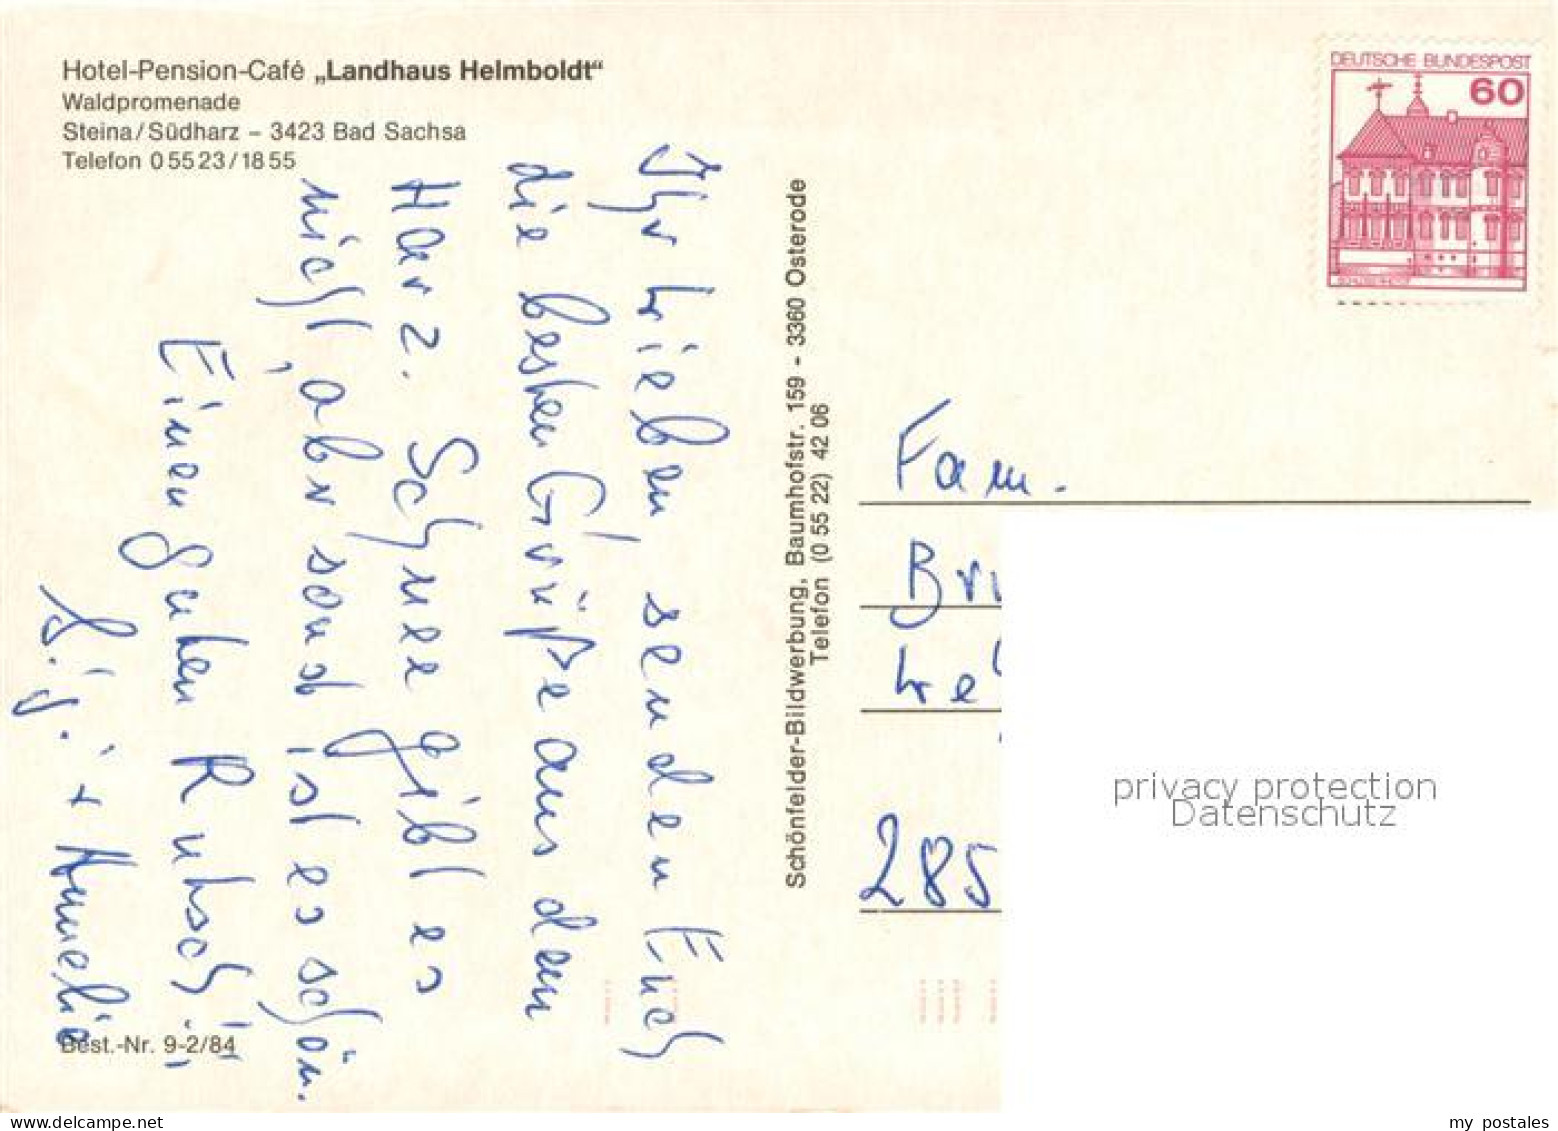 Hotel-Pension-Café „Landhaus Helmboldt“
Waldpromenade
Steina/Südharz – 3423 Bad Sachsa
Telefon 0 55 23 / 18 55
Ihr Lieben, senden Euch
die besten Grüße aus dem
Harz. Schnee gibt es
nicht, aber sonst ist es schön.
Einen guten Rutsch!!
+ Annelie
Best.-Nr. 9-2/84
Schönfelder-Bildwerbung, Baumhofstr. 159 - 3360 Osterode
Telefon (0 55 22) 42 06
DEUTSCHE BUNDESPOST
60
Fam.
285
privacy protection
Datenschutz
my postales